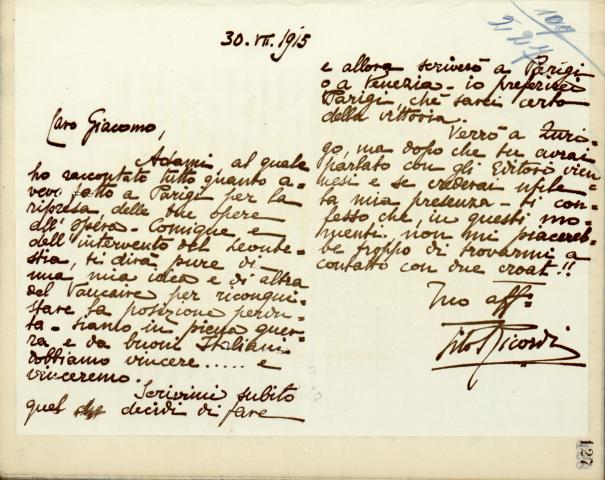 109
227
30.VII.1915
Caro Giacomo,
Adami, al quale
ho raccontato tutto quanto a-
vevo fatto a Parigi per la
ripresa delle tue opere
all'Opéra-Comique e
dell'intervento del Leonte-
stia, ti dirà pure di
una mia idea e di altra
del Vaucaire per riconqui-
stare la posizione perdu-
ta - siamo in piena guer-
ra e da buoni Italiani
dobbiamo vincere..... e
vinceremo.
Scrivimi subito
quel decidi di fare
e allora scriverò a Parigi
o a Venezia - io preferirei
Parigi, chè sarei certo
della vittoria.
Verrò a Zuri-
go, ma dopo che tu avrai
parlato con gli Editori vien-
nesi e se crederai utile
la mia presenza - ti con-
fesso che, in questi mo-
menti non mi piacereb-
be troppo di trovarmi a
contatto con due croati!!
Tuo aff.
Tito Ricordi
127